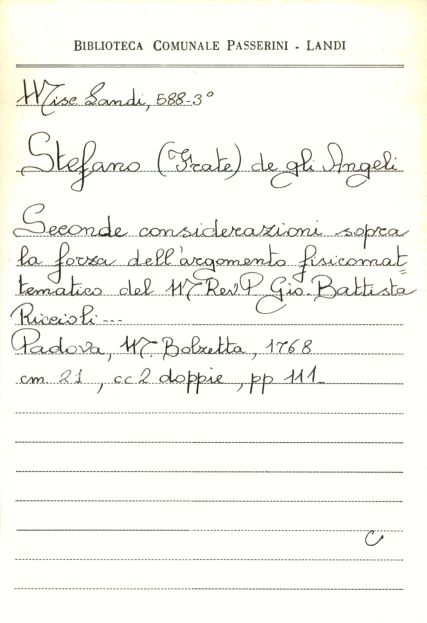 BIBLIOTECA COMUNALE PASSERINI - LANDI
Misc Landi, 588-3°
Stefano (Frate) de gli Angeli
Seconde considerazioni sopra
la forza dell'argomento fisicomat=
tematico del M. Rev. P Gio. Battista
Riccioli ---
Padova, M. Bolzetta, 1768
cm. 21, cc 2 doppie, pp 111_
C